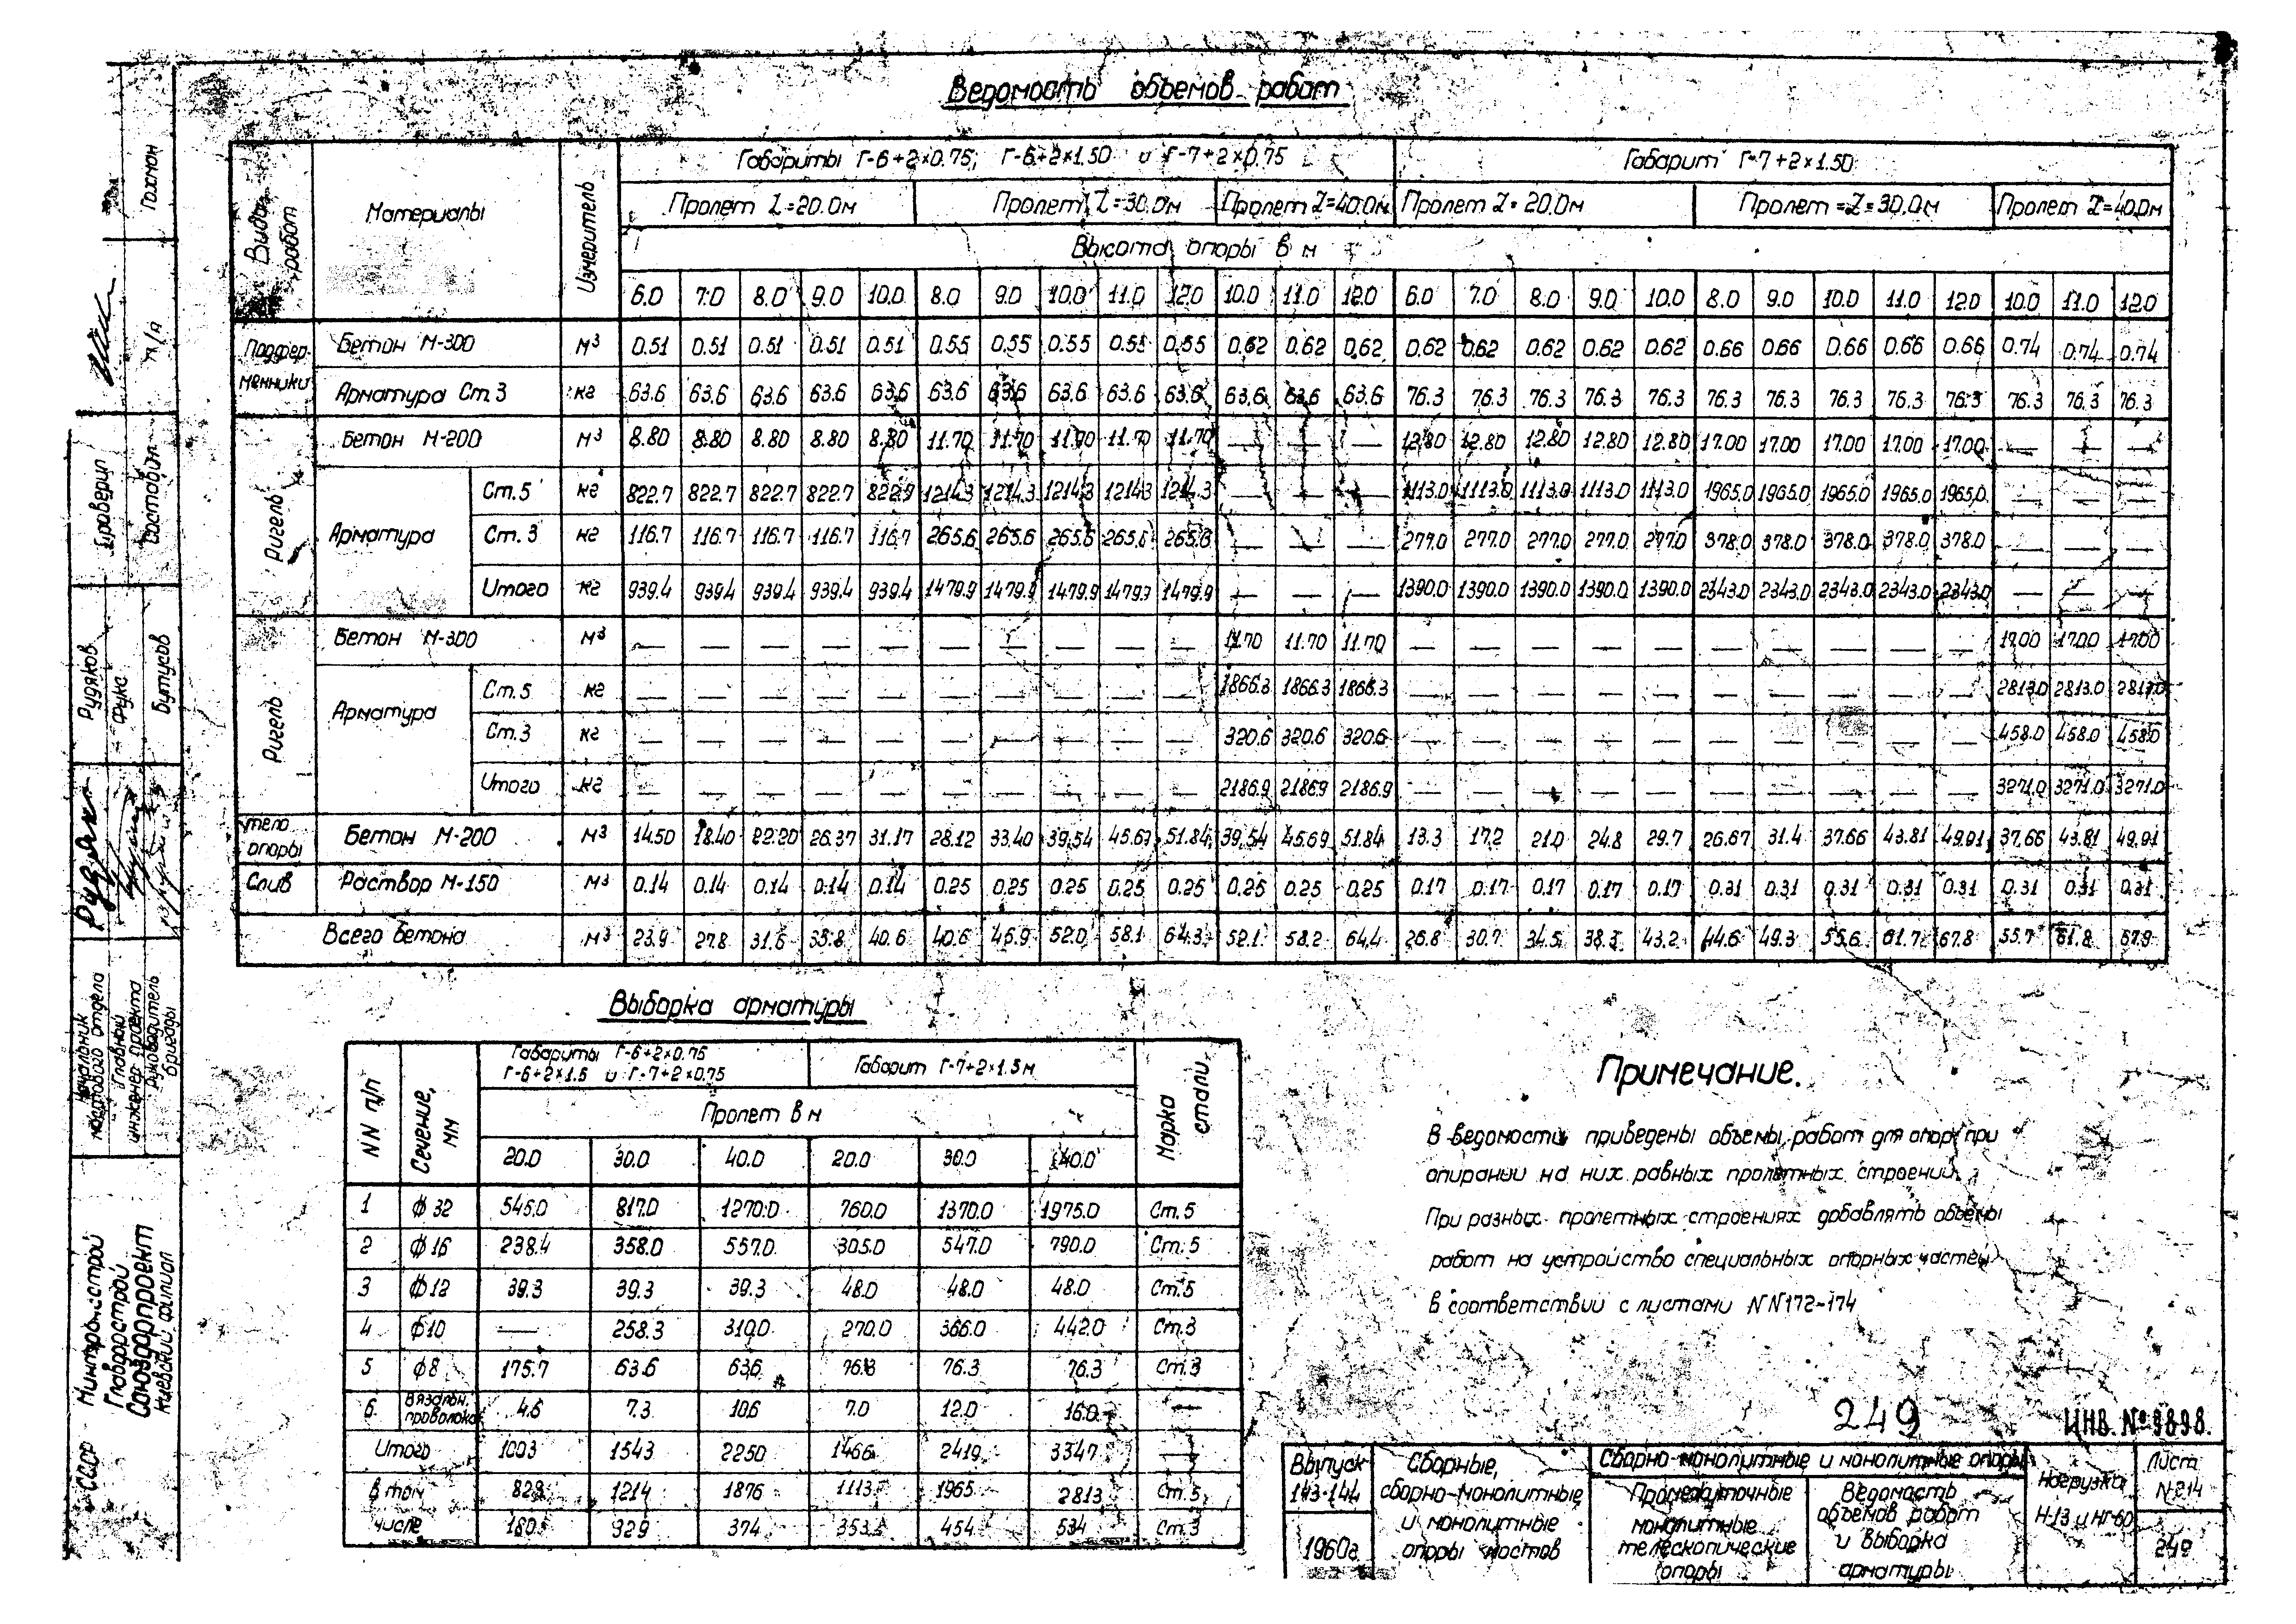 Ведомость объемов работ
Виды работ | Материалы | Измеритель | Габариты Г-6+2×0.75; Г-6+2×1.50 и Г-7+2×0.75 | Габарит Г-7+2×1.50
Пролет L=20.0м | Пролет L=30.0м | Пролет L=40.0м | Пролет L=20.0м | Пролет L=30.0м | Пролет L=40.0м
Высота опоры в м
6.0 7.0 8.0 9.0 10.0 8.0 9.0 10.0 11.0 12.0 10.0 11.0 12.0 6.0 7.0 8.0 9.0 10.0 8.0 9.0 10.0 11.0 12.0 10.0 11.0 12.0
Подфер-менники | Бетон М-300 | м³ | 0.51 0.51 0.51 0.51 0.51 0.55 0.55 0.55 0.55 0.55 0.62 0.62 0.62 0.62 0.62 0.62 0.62 0.62 0.66 0.66 0.66 0.66 0.66 0.74 0.74 0.74
Арматура Ст.3 | кг | 63.6 63.6 63.6 63.6 63.6 63.6 63.6 63.6 63.6 63.6 63.6 63.6 63.6 76.3 76.3 76.3 76.3 76.3 76.3 76.3 76.3 76.3 76.3 76.3 76.3 76.3
Ригель | Бетон М-200 | м³ | 8.80 8.80 8.80 8.80 8.80 11.70 11.70 11.70 11.70 11.70 — — — 12.80 12.80 12.80 12.80 12.80 17.00 17.00 17.00 17.00 17.00 — — —
Арматура | Ст.5 | кг | 822.7 822.7 822.7 822.7 822.7 1214.3 1214.3 1214.3 1214.3 1214.3 — — — 1113.0 1113.0 1113.0 1113.0 1113.0 1965.0 1965.0 1965.0 1965.0 1965.0 — — —
Ст.3 | кг | 116.7 116.7 116.7 116.7 116.7 265.6 265.6 265.6 265.6 265.6 — — — 277.0 277.0 277.0 277.0 277.0 378.0 378.0 378.0 378.0 378.0 — — —
Итого | кг | 939.4 939.4 939.4 939.4 939.4 1479.9 1479.9 1479.9 1479.9 1479.9 — — — 1390.0 1390.0 1390.0 1390.0 1390.0 2343.0 2343.0 2343.0 2343.0 2343.0 — — —
Ригель | Бетон М-300 | м³ | — — — — — — — — — — 11.70 11.70 11.70 — — — — — — — — — — 17.00 17.00 17.00
Арматура | Ст.5 | кг | — — — — — — — — — — 1866.3 1866.3 1866.3 — — — — — — — — — — 2813.0 2813.0 2813.0
Ст.3 | кг | — — — — — — — — — — 320.6 320.6 320.6 — — — — — — — — — — 458.0 458.0 458.0
Итого | кг | — — — — — — — — — — 2186.9 2186.9 2186.9 — — — — — — — — — — 3271.0 3271.0 3271.0
тело опоры | Бетон М-200 | м³ | 14.50 18.40 22.20 26.37 31.17 28.12 33.40 39.54 45.67 51.84 39.54 45.69 51.84 13.3 17.2 21.0 24.8 29.7 26.67 31.4 37.66 43.81 49.91 37.66 43.81 49.91
Слив | Раствор М-150 | м³ | 0.14 0.14 0.14 0.14 0.14 0.25 0.25 0.25 0.25 0.25 0.25 0.25 0.25 0.17 0.17 0.17 0.17 0.17 0.31 0.31 0.31 0.31 0.31 0.31 0.31 0.31
Всего бетона | м³ | 23.9 27.8 31.6 35.8 40.6 40.6 45.9 52.0 58.1 64.3 52.1 58.2 64.4 26.8 30.7 34.5 38.3 43.2 44.6 49.3 55.6 61.7 67.8 55.7 61.8 67.9
Выборка арматуры
NN п/п | Сечение, мм | Габариты Г-6+2×0.75 Г-6+2×1.5 и Г-7+2×0.75 | Габарит Г-7+2×1.5м | Марка стали
Пролет в м
20.0 | 30.0 | 40.0 | 20.0 | 30.0 | 40.0
1 | ф32 | 546.0 | 817.0 | 1270.0 | 760.0 | 1370.0 | 1975.0 | Ст.5
2 | ф16 | 238.4 | 358.0 | 557.0 | 305.0 | 547.0 | 790.0 | Ст.5
3 | ф12 | 39.3 | 39.3 | 39.3 | 48.0 | 48.0 | 48.0 | Ст.5
4 | ф10 | — | 258.3 | 310.0 | 270.0 | 366.0 | 442.0 | Ст.3
5 | ф8 | 175.7 | 63.6 | 63.6 | 76.3 | 76.3 | 76.3 | Ст.3
6 | Вязальн. проволока | 4.6 | 7.3 | 10.6 | 7.0 | 12.0 | 16.0 | —
Итого | 1003 | 1543 | 2250 | 1466 | 2419 | 3347 | —
в том | 823 | 1214 | 1876 | 1113 | 1965 | 2813 | Ст.5
числе | 180 | 329 | 374 | 353 | 454 | 534 | Ст.3
Примечание.
В ведомости приведены объемы работ для опор при
опирании на них равных пролетных строений.
При разных пролетных строениях добавлять объемы
работ на устройство специальных опорных частей
в соответствии с листами NN172-174
249
ИНВ. № 9898.
Выпуск 143-144
1960г
Сборные, сборно-монолитные и монолитные опоры мостов
Сборно-монолитные и монолитные опоры
Промежуточные монолитные телескопические опоры
Ведомость объемов работ и выборка арматуры
Нагрузка Н-13 и НГ-60
Лист N214
249
Гохман
п/п
Проверил
Составил
Рудяков
Фукс
Бутусов
Начальник мостового отдела
Главный инженер проекта
Руководитель бригады
СССР
Минтрансстрой
Главдорстрой
Союздорпроект
Киевский филиал